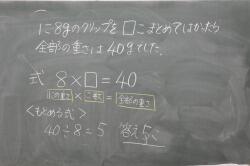 1こ8gのクリップを□こまとめてはかったら
全部の重さは40gでした。
式 8×□=40
1この重さ×こ数=全部の重さ
<もとめる式>
40÷8=5 答え5こ